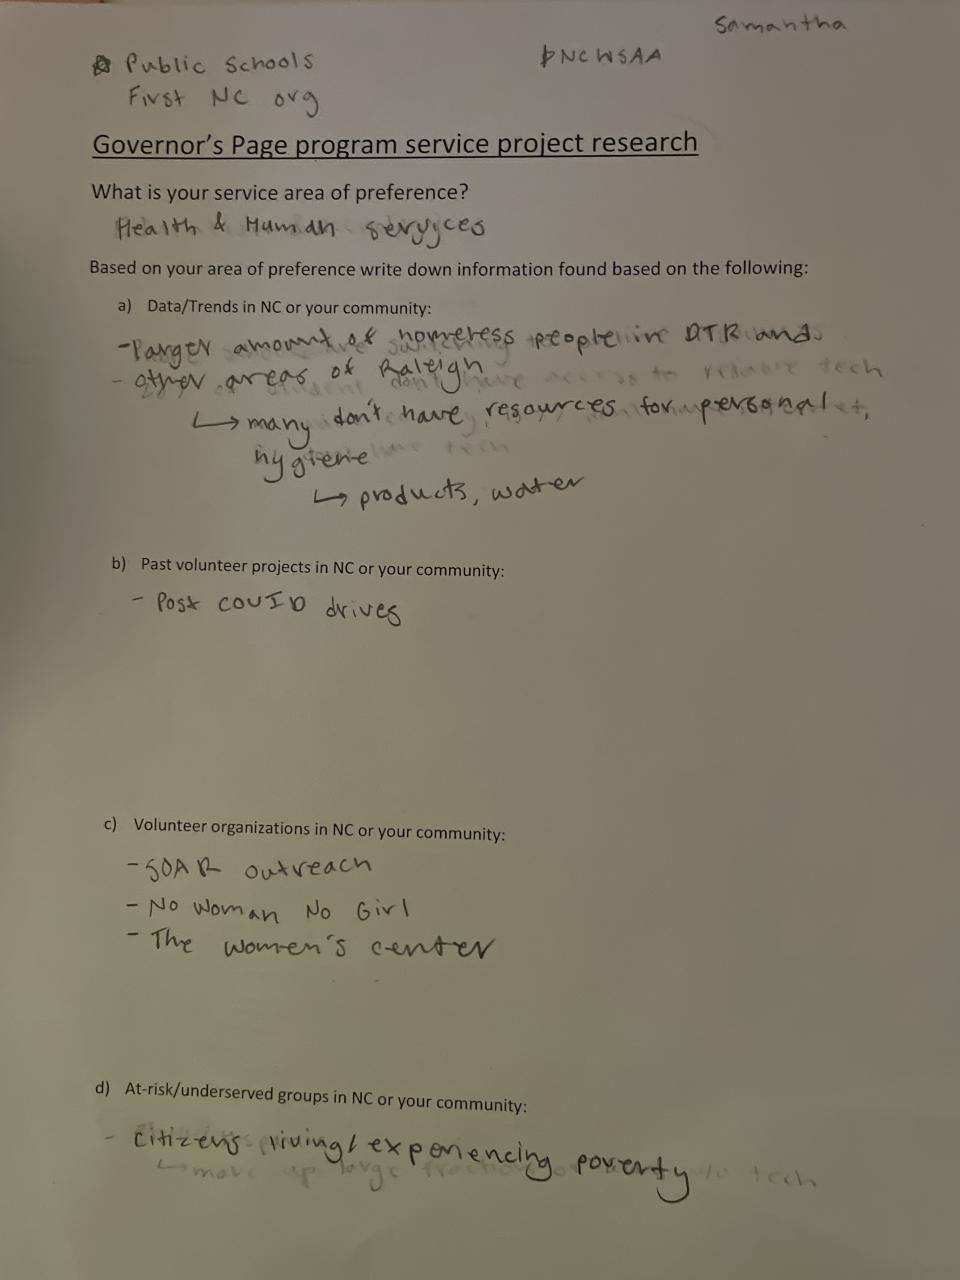 Samantha
Public Schools
NCWSAA
First NC org
Governor's Page program service project research
What is your service area of preference?
Health & Human services
Based on your area of preference write down information found based on the following:
a) Data/Trends in NC or your community:
-larger amount of homeless people in DTR and
- other areas of Raleigh
don't have access to reliable tech
↳ many don't have resources for personal
hygiene
tech
↳ products, water
b) Past volunteer projects in NC or your community:
- Post COVID drives
c) Volunteer organizations in NC or your community:
- SOAR outreach
- No Woman No Girl
- The women's center
d) At-risk/underserved groups in NC or your community:
- citizens living/experiencing poverty
↳ make up large w/o tech